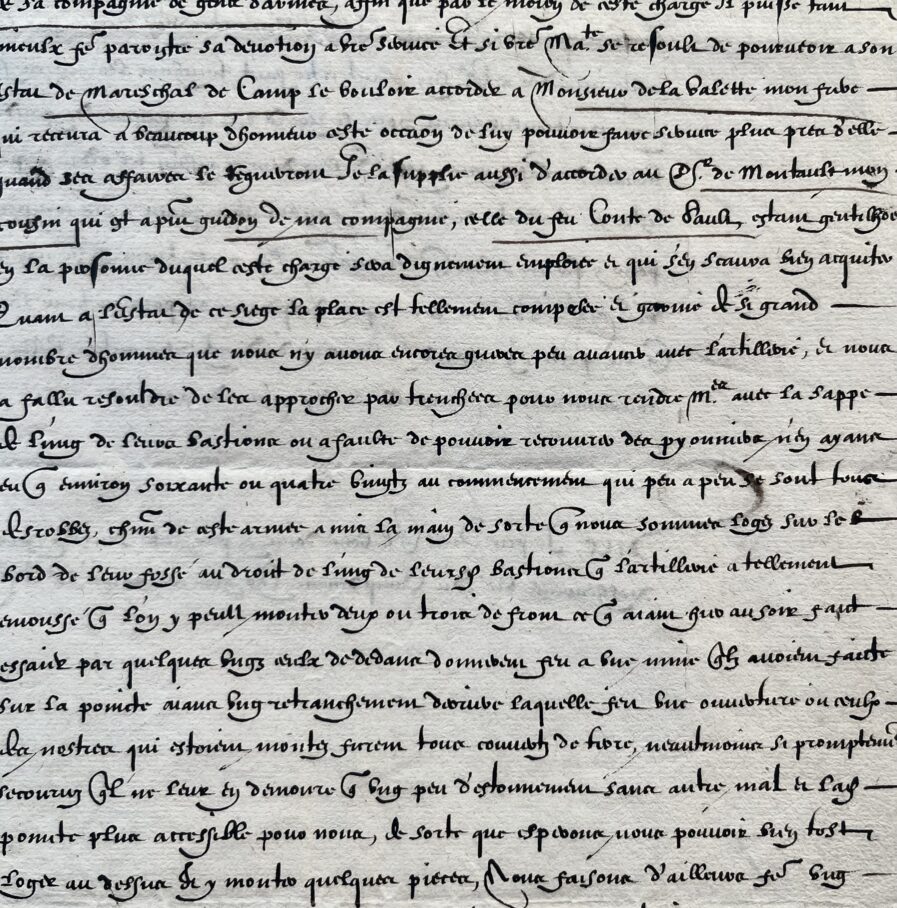 sa compagnie de gens d'armes, afin que par le moien de ceste charge il puisse tant
mieulx fe͞r paroistre sa devotion a vre͞ service Et si vre͞ Ma.te se resoult de pourveoir a son
estat de Mareschal de Camp le vouloir accorder a Monsieur de la Valette mon frere
qui recevra a beaucoup d'honneur ceste occāon de luy pouvoir faire service plus pres d'elle
quand ses affaires le requerront Je la supplie aussi d'accorder au S.r de Montault mon
cousin qui est a pn͞t guidon de ma compagnie, celle du feu Conte de Sault, estant gentilho͞e
en la personne duquel ceste charge sera dignement emploiee et qui s'en scaura bien acquiter
Quant a l'estat de ce siege la place est tellement composee et garnie de si grand
nombre d'hommes que nous n'y avons encores gueres peu avancer avec l'artillerie, et nous
a fallu resouldre de les approcher par trenchees pour nous rendre m.es avec la sappe
de l'ung de leurs bastions ou a faulte de pouvoir recouvrer des pyonniers n'en ayans
eu q͞ environ soixante ou quatre vingtz au commencement qui peu a peu se sont tous
desrobbez, chu͞n de ceste armee a mis la main de sorte q͞ nous sommes logez sur le
bord de leur fossé au droit de l'ung de leursd bastions q͞ l'artillerie a tellement
emoussé q͞ l'on y peult monter deux ou trois de front ce q͞ aiant hier au soir faict
essaier par quelques ungs ceulx de dedans donnerent feu a une mine q͞lz avoient faicte
sur la poincte aians ung retranchement derriere laquelle feit une ouverture ou ceulx
des nostres qui estoient montez furent tous couvertz de terre, neantmoins si promptemen͞t
secouruz q͞l ne leur en demoure q͞ ung peu d'estonnement sans autre mal et lad
pointe plus accessible pour nous, de sorte que esperons nous pouvoir bien tost
loger au dessus et y monter quelques pieces, Nous faisons d'ailleurs fe͞r ung